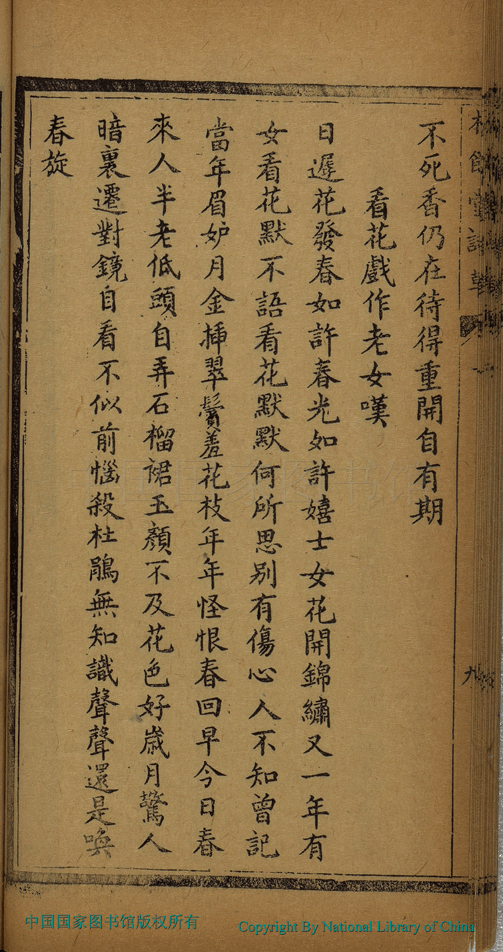 不死香仍在待得重開自有期
看花戲作老女嘆
日遲花發春如許春光如許嬉士女花開錦繡又一年有
女看花默不語看花默默何所思別有傷心人不知曾記
當年眉妒月金插翠鬢羞花枝年年怪恨春回早今日春
來人半老低頭自弄石榴裙玉顏不及花色好歲月驚人
暗裏遷對鏡自看不似前惱殺杜鵑無知識聲聲還是喚
春旋
九
中国国家图书馆版权所有
Copyright By National Library of China